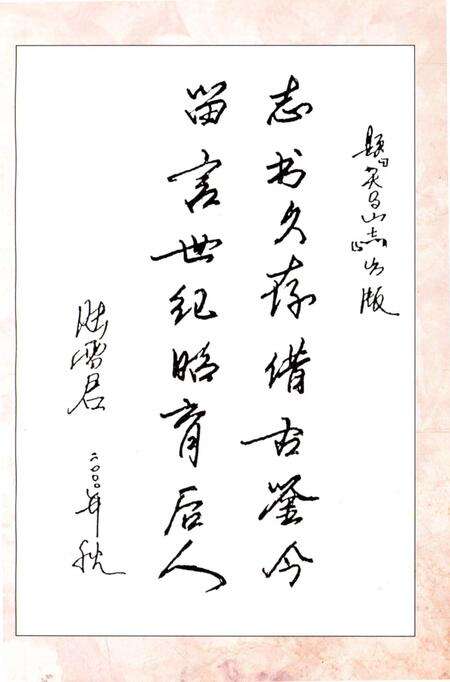 题《灵山志》出版
志书久存借古鉴今
留言世纪晤育后人
陆君
二〇〇〇年秋